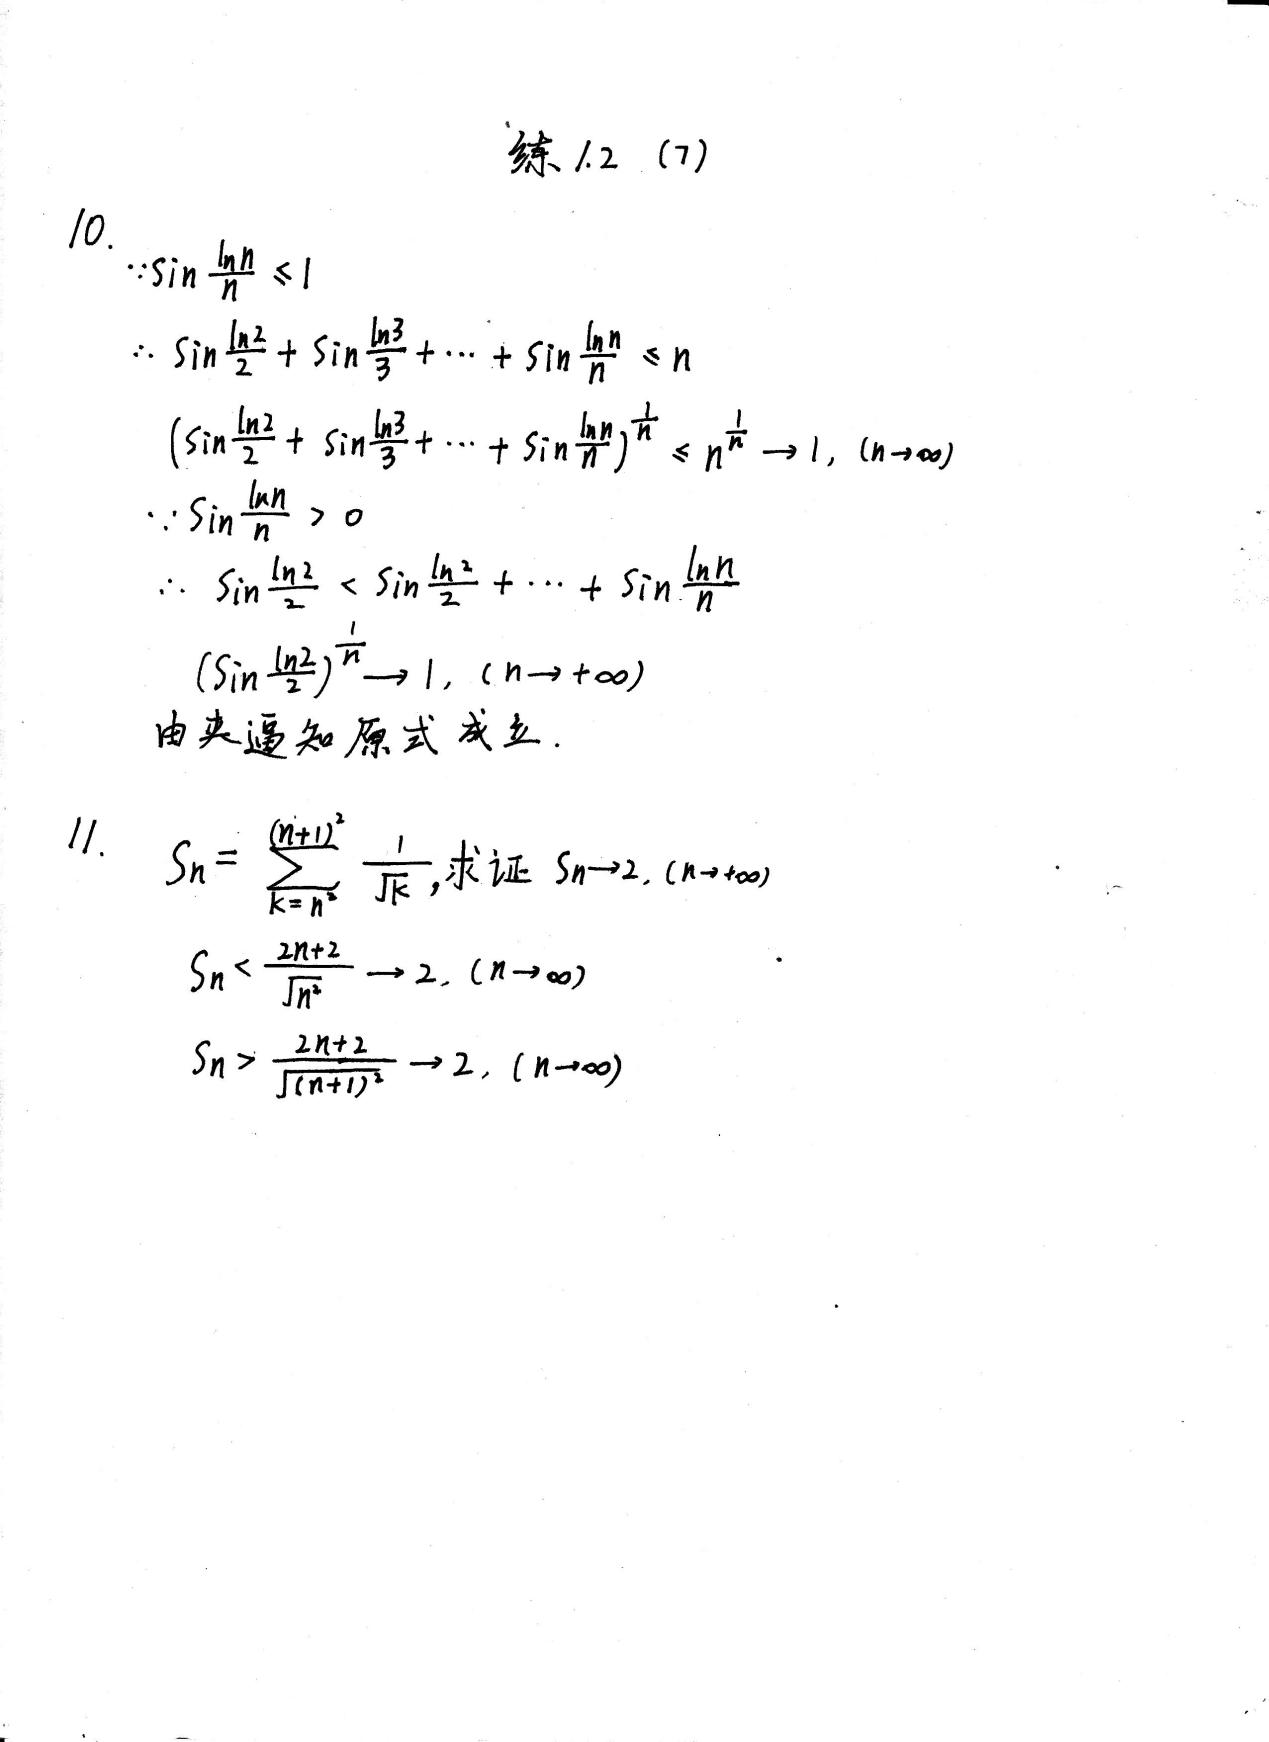 练1.2 (7)
10.
∵ sin \frac{ln n}{n} ≤ 1
∴ sin \frac{ln2}{2} + sin \frac{ln3}{3} + ⋯ + sin \frac{ln n}{n} ≤ n
(sin \frac{ln2}{2} + sin \frac{ln3}{3} + ⋯ + sin \frac{ln n}{n})^{\frac{1}{n}} ≤ n^{\frac{1}{n}} → 1, (n→∞)
∵ sin \frac{ln n}{n} > 0
∴ sin \frac{ln2}{2} < sin \frac{ln2}{2} + ⋯ + sin \frac{ln n}{n}
(sin \frac{ln2}{2})^{\frac{1}{n}} → 1, (n→+∞)
由夹逼知原式成立.
11. S_n = \sum_{k=n^2}^{(n+1)^2} \frac{1}{\sqrt{k}}, 求证 S_n→2, (n→+∞)
S_n < \frac{2n+2}{\sqrt{n^2}} → 2, (n→∞)
S_n > \frac{2n+2}{\sqrt{(n+1)^2}} → 2, (n→∞)